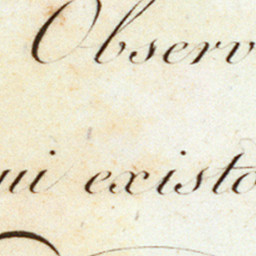 Observ
ui existo